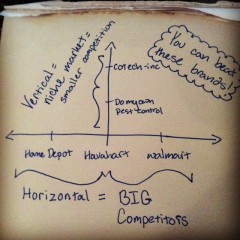 Vertical =
niche market =
smaller competition
You can beat
these brands!
corech-inc
Domyown
Pest control
Home Depot
Havahart
walmart
Horizontal = BIG
Competitors